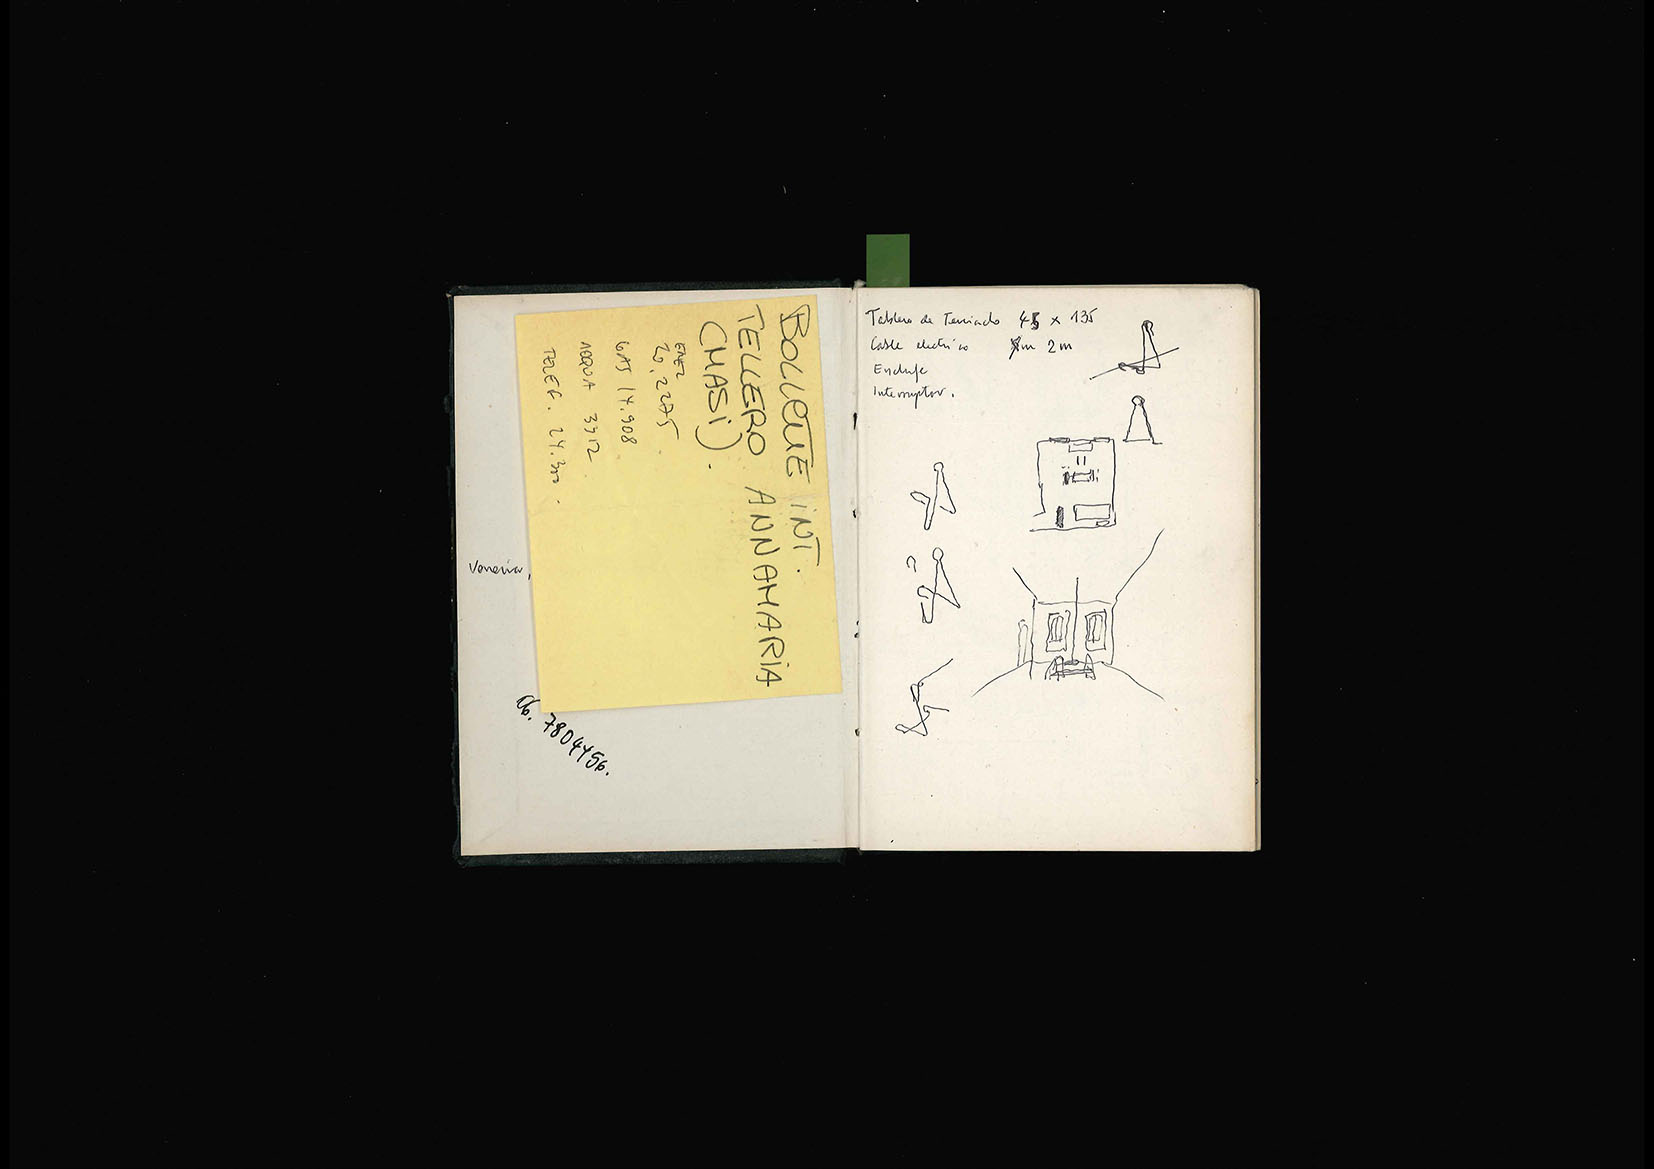 BOLLETTE INT.
TELLERO ANNAMARIA
(MASI).
ENEL
20.2275
GAS 14.908
ACQUA 3312
TELEF. 24.300.
Venezia,
Ab. 7804456.
Tablero de Terciado 45 x 135
Cable electrico m 2 m
Enchufe
Interruptor.